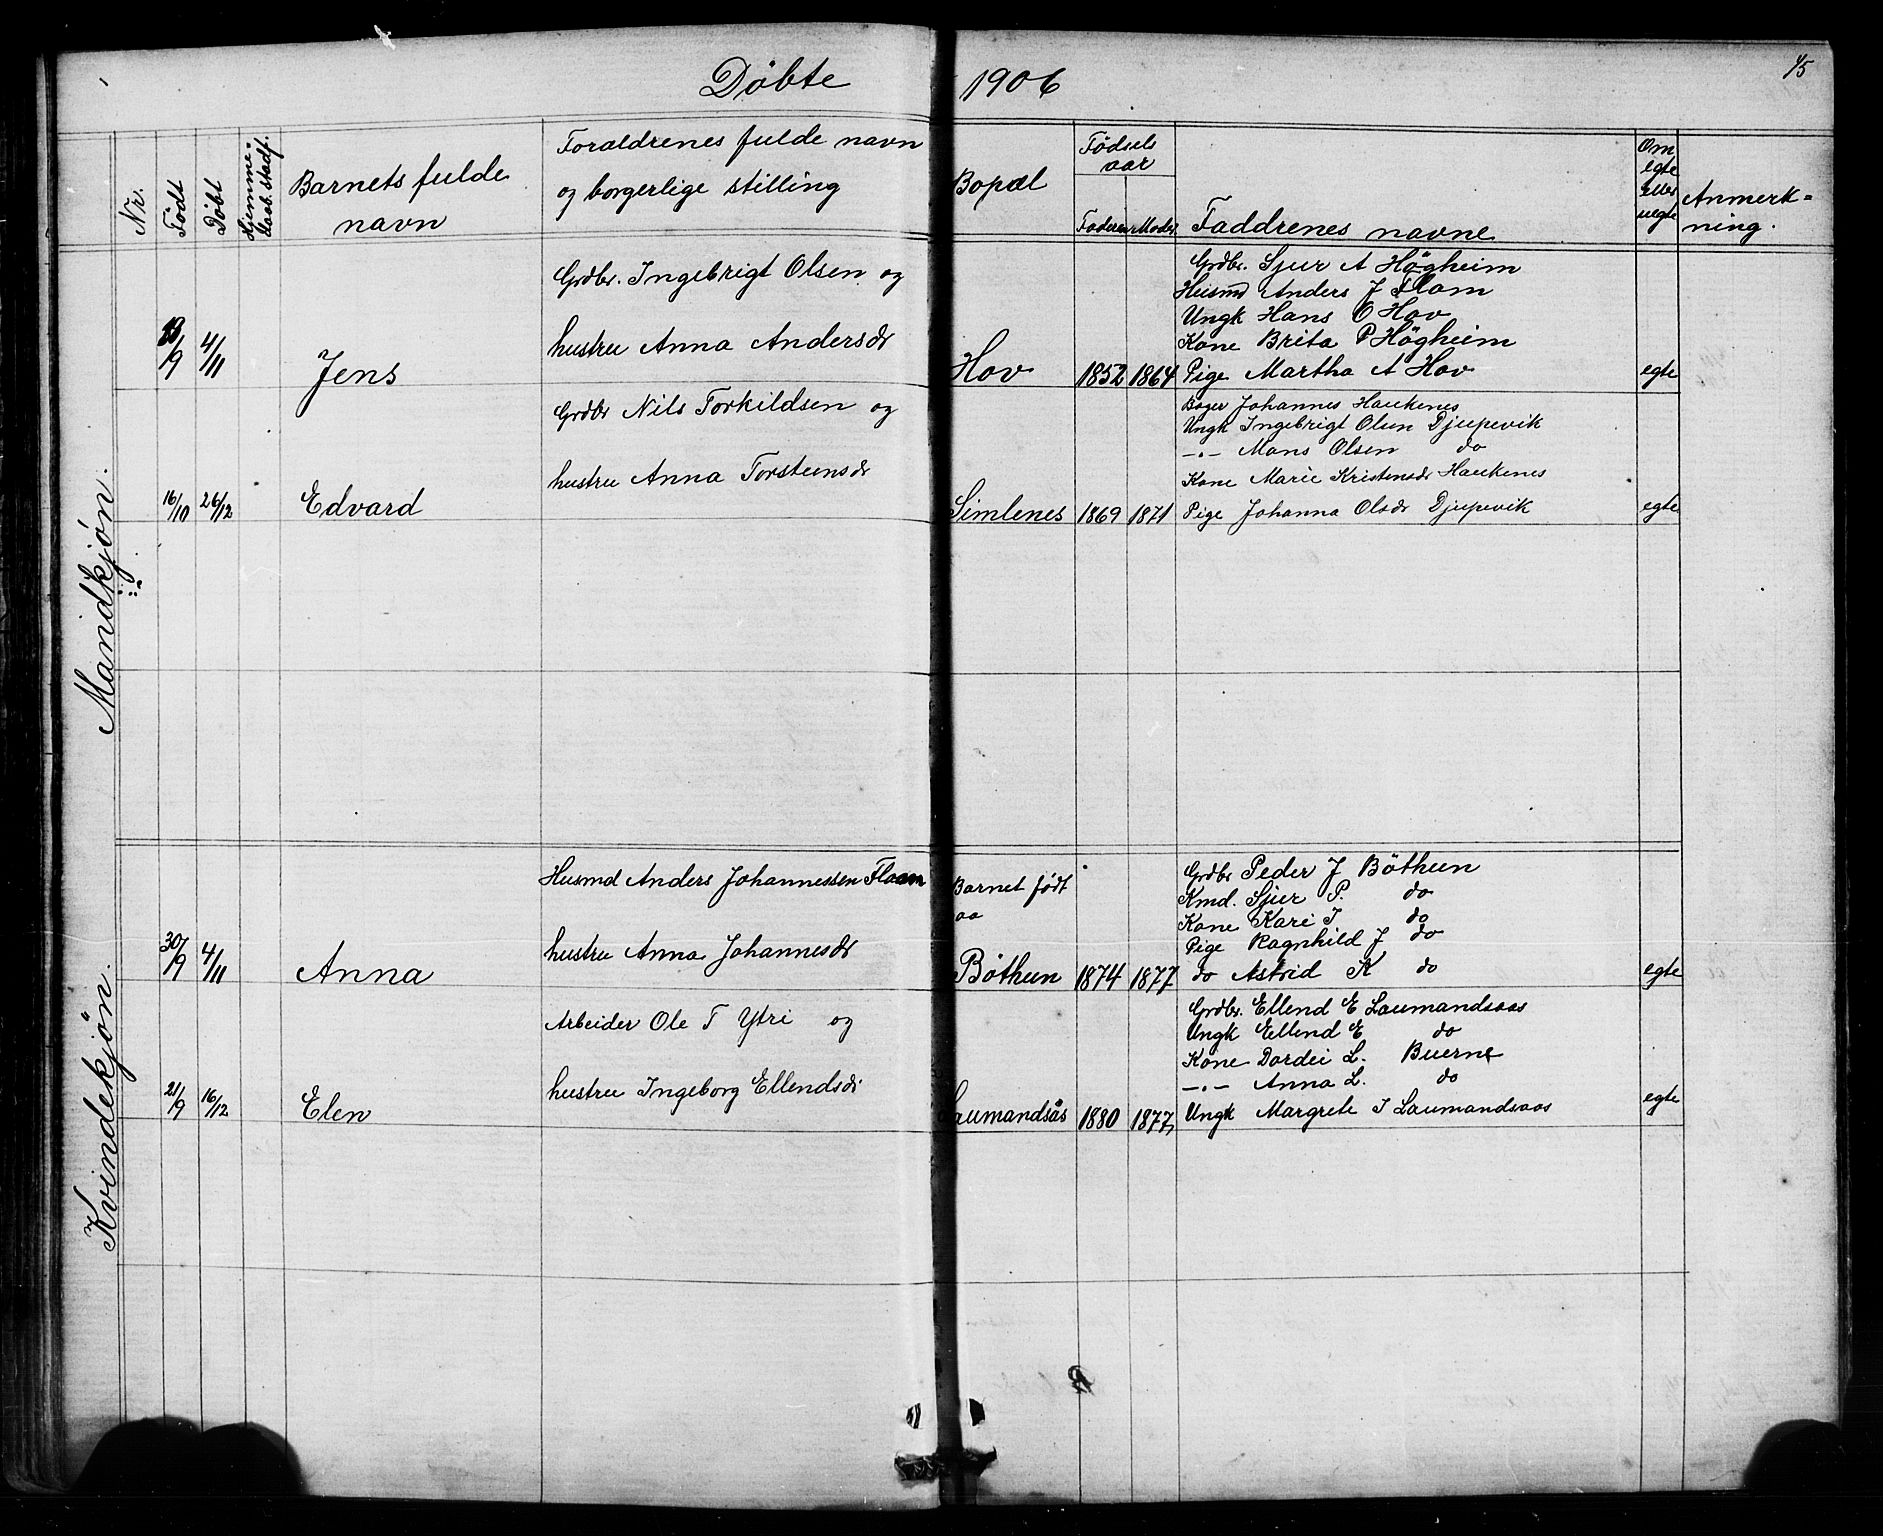 Döbte 1906
45
Nr.
Födt
Döbt
Hjemme-
daab. stadf.
Barnets fulde
navn
Foraldrenes fulde navn
og borgerlige stilling
Bopæl
Fødsels
aar
Faderen
Moder
Faddrenes navne
Om
egte
eller
uegte
Anmerk=
ning.
Mandkjön.
Grdbr. Ingebrigt Olsen og
hustru Anna Andersdr
/9 4/11 Jens
Hov 1852 1864
Grdbr. Sjur A Högheim
Husmd Anders J Flam
Ungk Hans O Hov
Kone Brita P Högheim
Pige Martha A Hov
egte
Grdbr Nils Torkildsen og
hustru Anna Torsteinsdr
16/10 26/12 Edvard
Simlenes 1869 1871
Johannes Haukenes
Ungk Ingebrigt Olsen Djupevik
-"- Mons Olsen do
Kone Marie Kristensdr Haukenes
Pige Johanna Olsdr Djupevik
egte
Kvindekjön.
Husmd Anders Johannessen Flaam
hustru Anna Johannesdr
30/9 4/11 Anna
Barnet födt
paa
Böthun 1874 1877
Grdbr Peder J Böthun
Kmd. Sjur P. do
Kone Kari I do
Pige Ragnhild J do
do Astrid K do
egte
Arbeider Ole T Ytri og
hustru Ingeborg Ellendsdr
21/9 16/12 Elen
Laumandsås 1880 1877
Grdbr. Ellend E Laumandsaas
Ungk Ellend E do
Kone Dordei L. Buerne
-"- Anna L. do
Ungk Margrete I Laumandsaas
egte